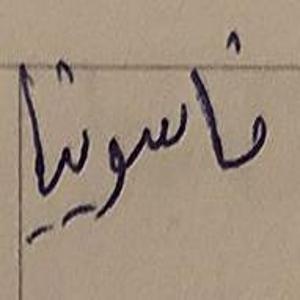 فاسويتيا